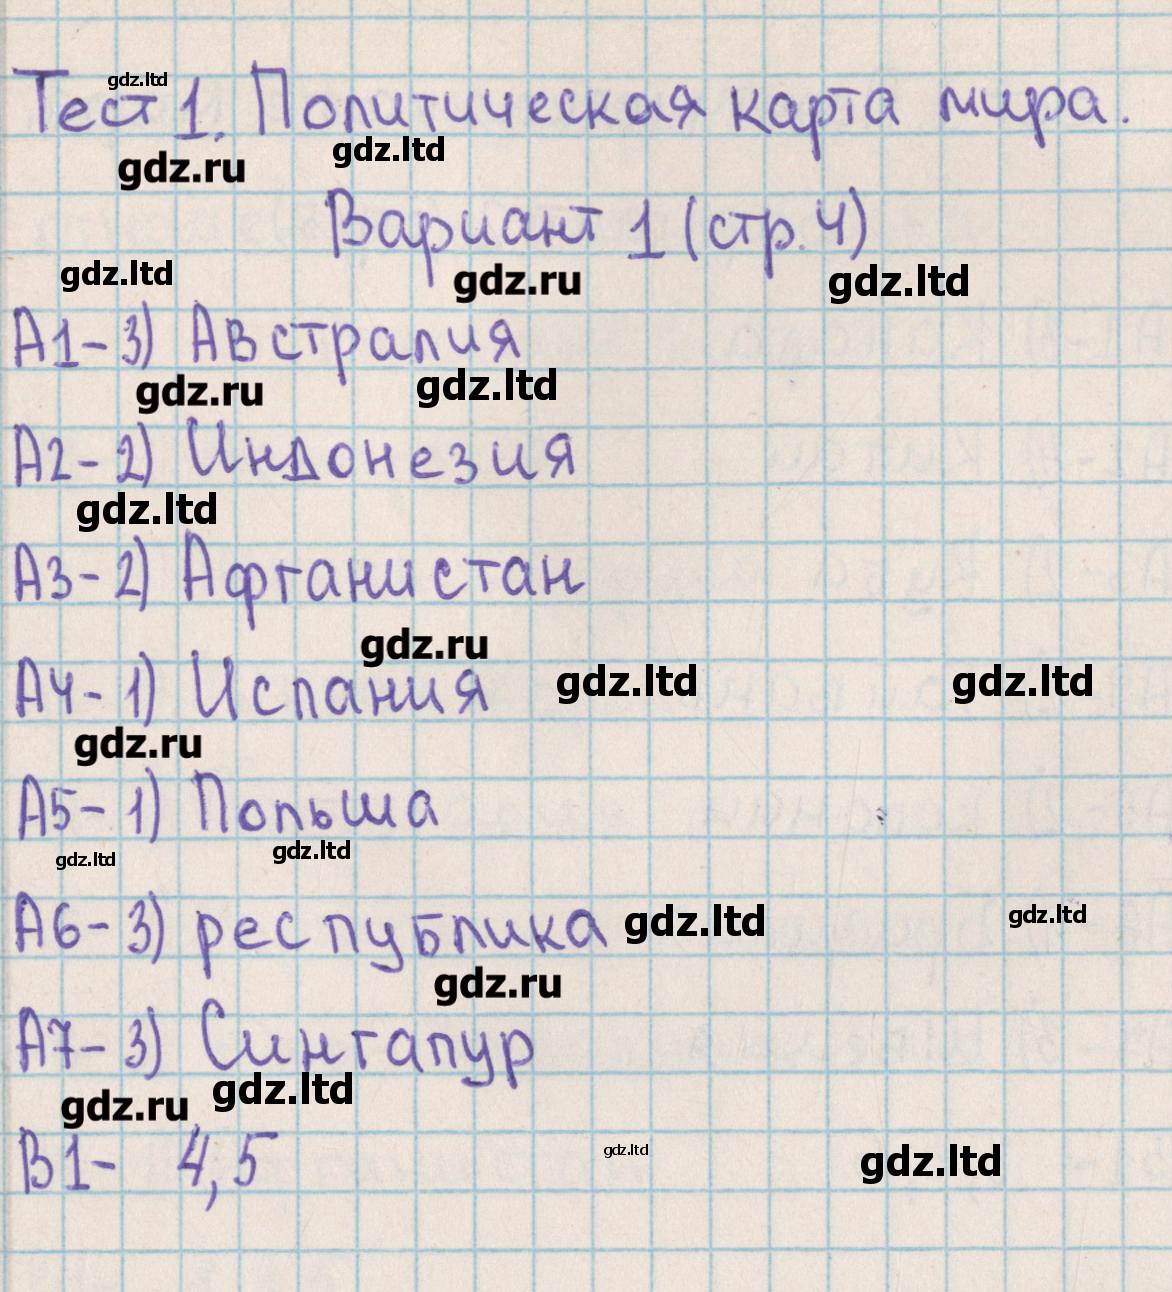 gdz.ltd
Тест 1. Политическая карта мира.
gdz.ru gdz.ltd
Вариант 1 (стр. 4)
gdz.ltd gdz.ru gdz.ltd
А1-3) Австралия
gdz.ru gdz.ltd
А2-2) Индонезия
gdz.ltd
А3-2) Афганистан
gdz.ru
А4-1) Испания gdz.ltd gdz.ltd
gdz.ru
А5-1) Польша
gdz.ltd gdz.ltd
А6-3) республика gdz.ltd gdz.ltd
gdz.ru
А7-3) Сингапур
gdz.ru gdz.ltd
В1- 4,5 gdz.ltd gdz.ltd